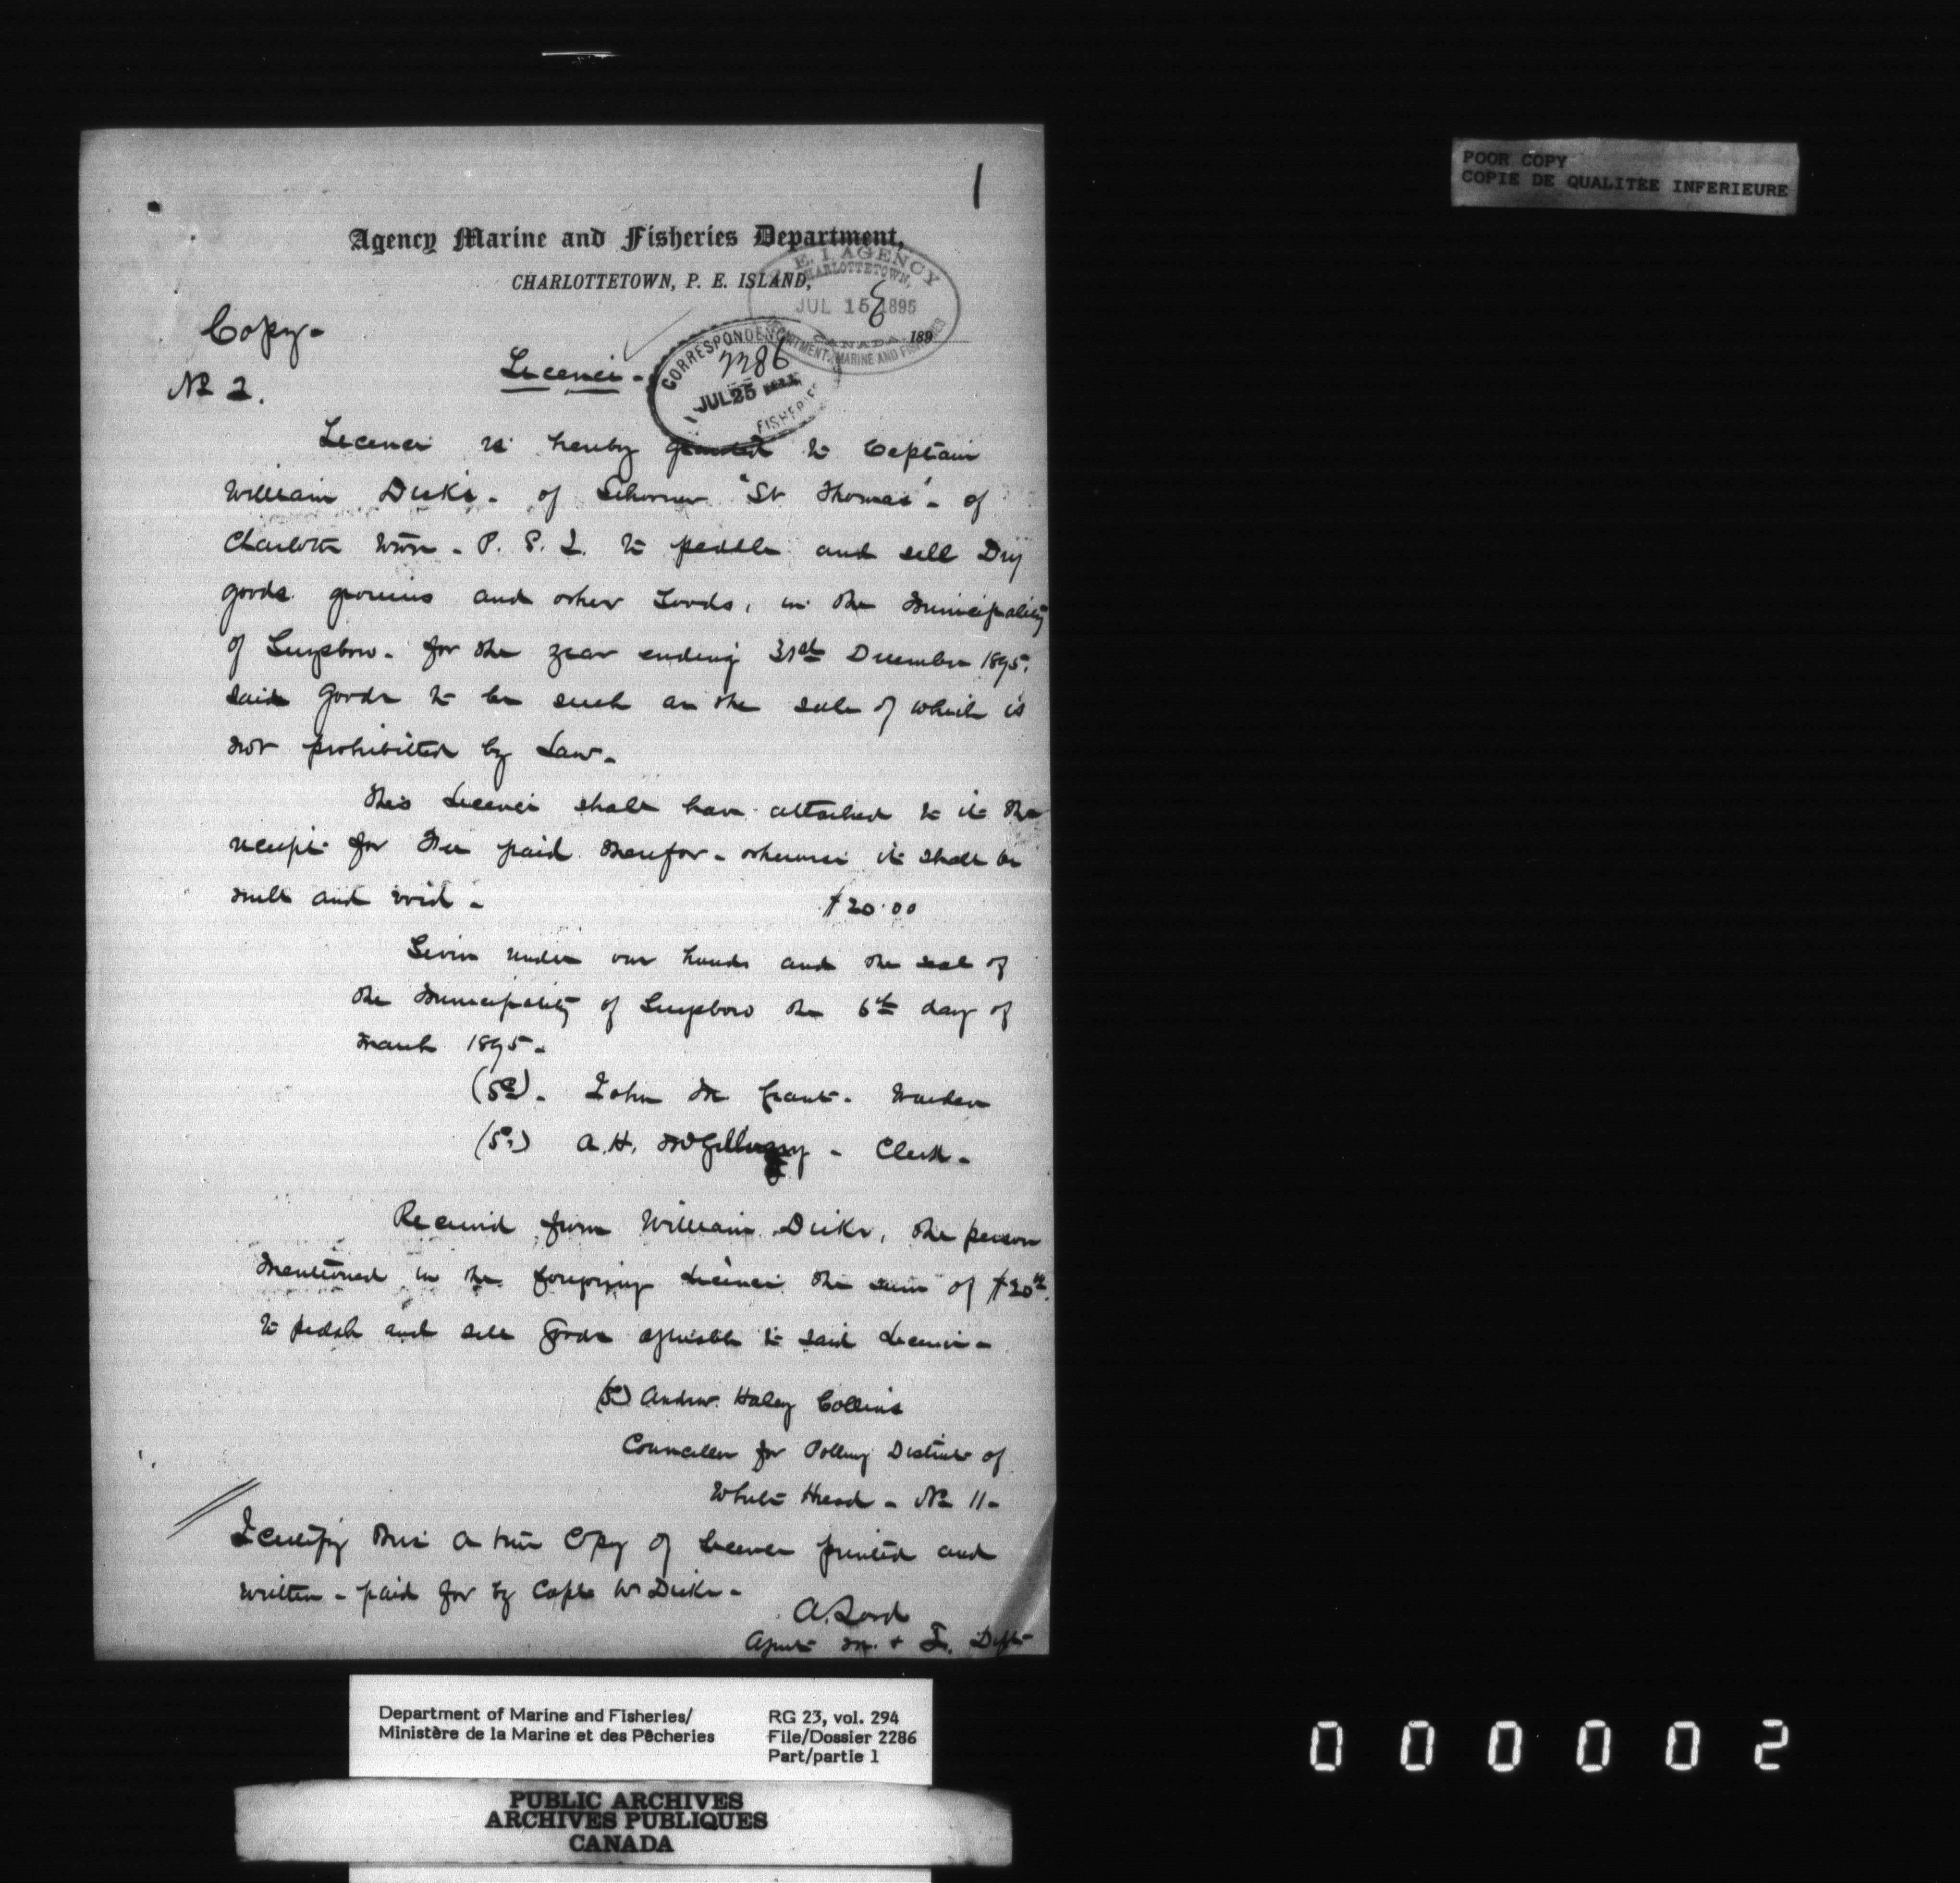 1
POOR COPY
COPIE DE QUALITEE INFERIEURE
Agency Marine and Fisheries Department,
CHARLOTTETOWN, P. E. ISLAND,
E. I. AGENCY
CHARLOTTETOWN,
JUL 15 1895
CANADA
DEPARTMENT MARINE AND FISHERIES
189
Copy-
No 2.
Licence -
CORRESPONDENCE
2286
JUL 25
FISHERIES
Licence is hereby granted to Captain
William Dicks - of Schooner "St Thomas" - of
Charlotte town - P. E. I. to peddle and sell Dry
goods groceries and other Goods, in the Municipality
of Guysboro - for the year ending 31st December 1895.
said goods to be such as the sale of which is
not prohibited by Law -
This Licence shall have attached to it the
receipt for Fee paid therefor - otherwise it shall be
null and void -
$20.00
Given under our hands and the seal of
the Municipality of Guysboro the 6th day of
March 1895 -
(Sd) - John M Grant - Warden
(Sd) A. H. McGillvary - Clerk -
Received from William Dicks, the person
mentioned in the foregoing Licence the sum of $20
to peddle and sell Goods agreeable to said Licence -
(Sd) Andrew Haley Collins
Councillor for Polling District of
White Head - No 11 -
I certify this a true Copy of Licence printed and
written - paid for by Capt W Dicks -
A. Lord
Agent M. & F. Dept
Department of Marine and Fisheries/
Ministère de la Marine et des Pêcheries
RG 23, vol. 294
File/Dossier 2286
Part/partie 1
PUBLIC ARCHIVES
ARCHIVES PUBLIQUES
CANADA
000002